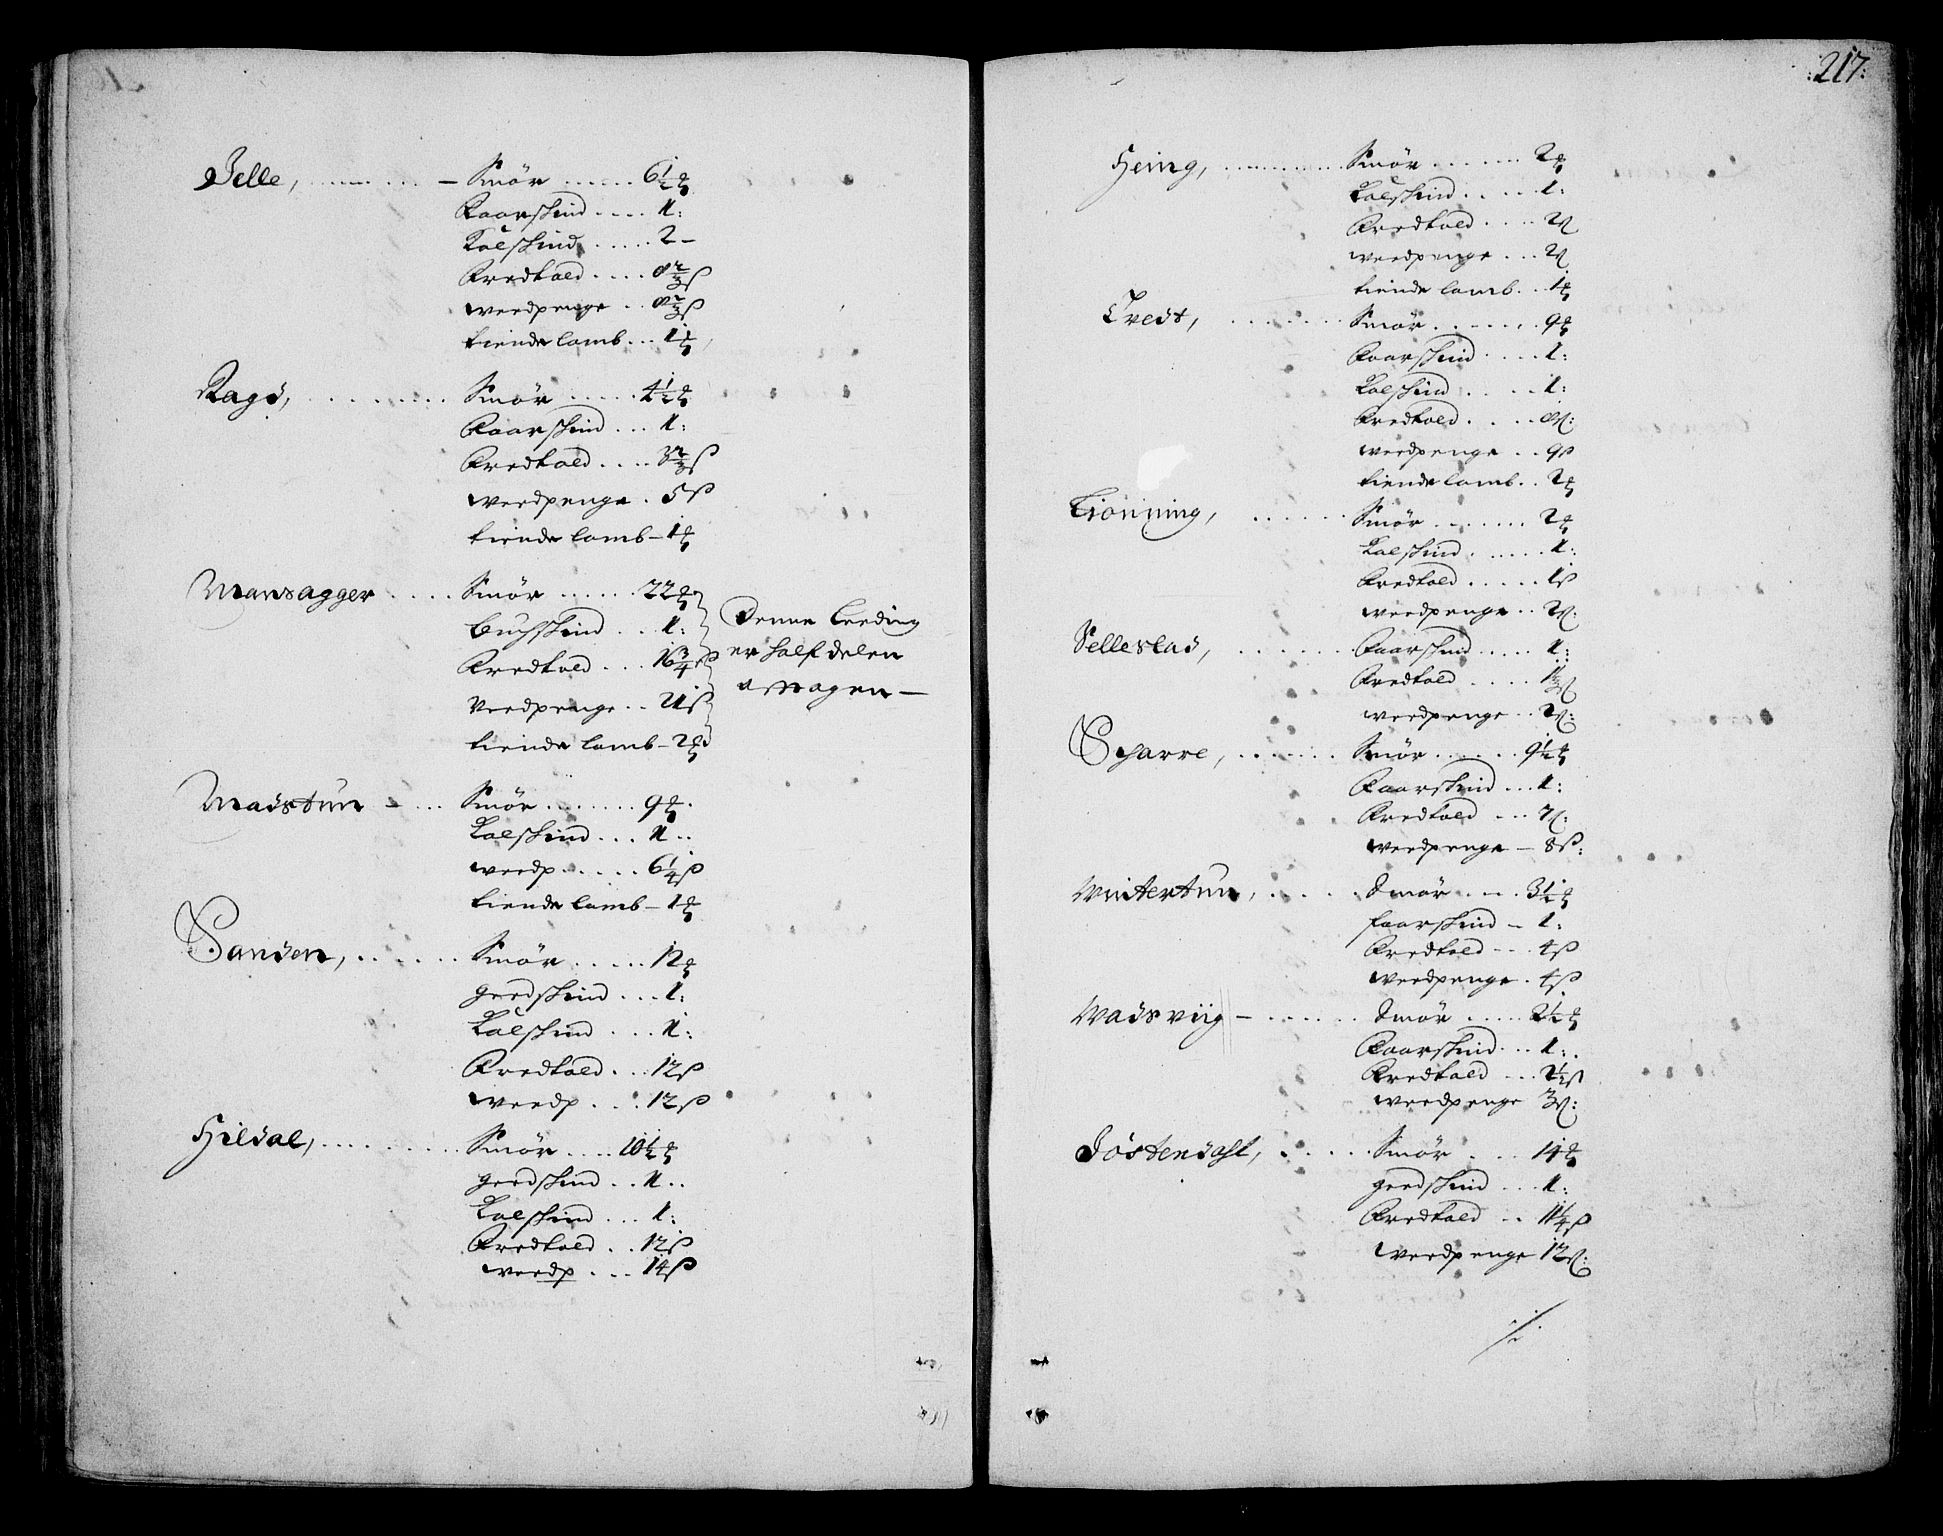 Jelle, ... – Smör ...... 6½ ₰
Faarskind .... 1:
Kalfskind ..... 2 –
Bredkald .... 8⅔ ß
weedpenge .. 8⅔ ß
tiende lamb ... 1 ₰
Ragö, ......... Smör ..... 4½ ₰
Faarskind ... 1:
Bredkald .... 3⅔ ß
weedpenge . 5 ß
tiende lamb – 1 ₰
Mansagger ..... Smör ...... 22 ₰
Buchskind ... 1:
Bredkald ... 16¾ ß
Veedpenge .. 21 ß
tiende lamb – 2 ₰
Denne Leeding
er half delen
aff
Madstun – ... Smör ....... 9 ₰
Kalfskind ... 1 ..
weedp ...... 6¼ ß
tiende lamb – 1 ₰
Sanden, ...... Smör ..... 12 ₰
geedskind ... 1:
Kalfskind ... 1:
Bredkald ... 12 ß
weedp .... 12 ß
Hildal, ......... Smör .... 10½ ₰
geedskind .. 1 ..
Kalfskind ... 1:
Bredkald .. 12 ß
weedp ... 14 ß
:217:
Heing, .......... Smör ...... 2 ₰
Kalfskind ..... 1:
Bredkald .... 2 ß
weedpenge ... 2 ß
tiende lamb .. 1 ₰
Tvedt, ........ Smör ....... 9 ₰
Faarskind ..... 1:
Kalfskind ..... 1:
Bredkald .... 8 ß:
weedpenge .. 9 ß
tiende lamb .. 2 ₰
Tionning, ...... Smör ....... 2 ₰
Kalfskind ...... 1:
Bredkald ..... 1 ß
weedpenge .. 2 ß:
Sellestad, ....... Faarskind ..... 1:
Bredkald ....
weedpenge .. 2 ß:
Scharre, ....... Smör ...... 9½ ₰
Faarskind ... 1:
Bredkald ... 7 ß:
weedpenge – 8 ß:
Wintertun, ..... Smör .... 3½ ₰
faarskind – 1:
Bredkald ... 4 ß
weedpenge . 4 ß
Wadsviig – ...... Smör ..... 2½ ₰
Faarskind ... 1:
Bredkald ... 2½ ß
weedpenge 3 ß:
Jöstendahl, ...... Smör ... 14 ₰
geedskind ... 1:
Bredkald .. 11¼ ß
weedpenge 12 ß: